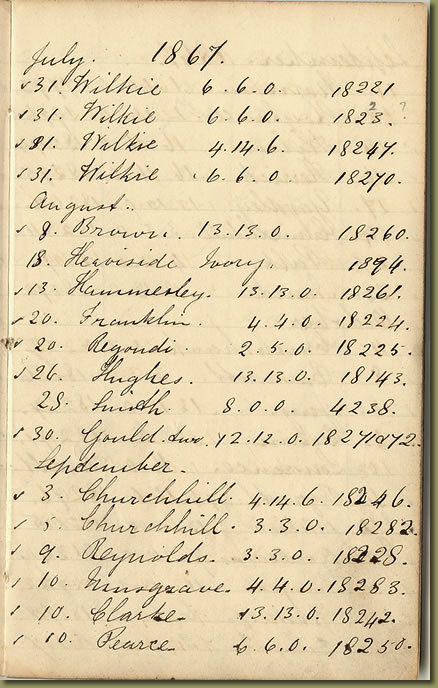 July. 1867.
31. Wilkie 6.6.0. 18221
31. Wilkie 6.6.0. 1823. 2 ?
31. Wilkie 4.14.6. 18247.
31. Wilkie 6.6.0 18270.
August.
8. Brown. 13.13.0. 18260.
18. Heaviside Ivory. 1894.
13. Hammersley. 13.13.0. 18261.
20. Franklin. 4.4.0. 18224.
20. Regondi. 2.5.0. 18225.
26. Hughes. 13.13.0. 18143.
28. Smith. 8.0.0. 4238.
30. Gould. two. 12.12.0. 18271&72.
September.
3. Churchhill. 4.14.6. 18246.
5. Churchhill. 3.3.0. 18282.
9. Reynolds. 3.3.0. 18228.
10. Musgrave. 4.4.0. 18283.
10. Clarke 13.13.0. 18242.
10. Pearce 6.6.0. 18250.